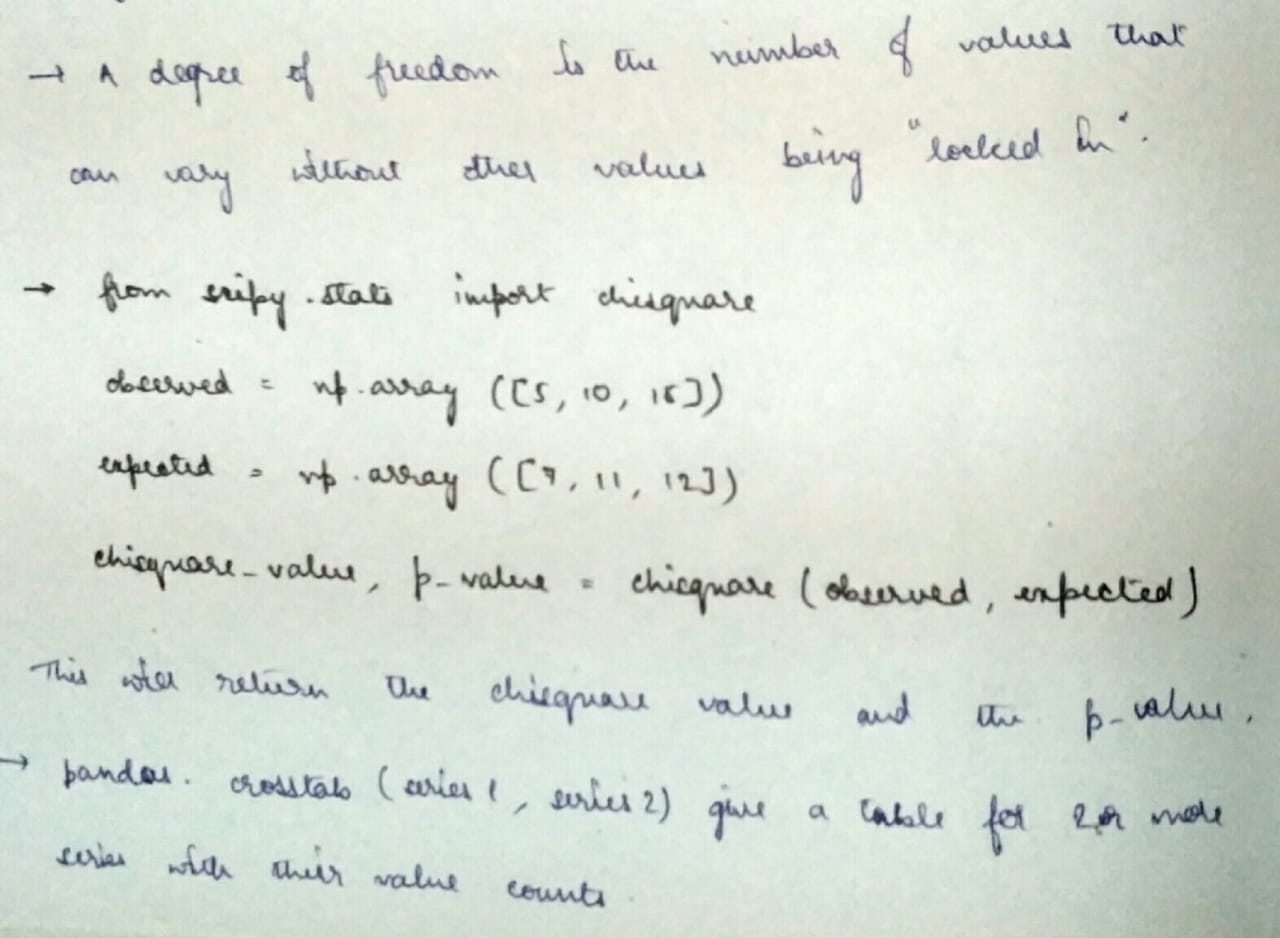 → A degree of freedom is the number of values that
can vary without other values being "locked in".
→ from scipy.stats import chisquare
observed = np.array ([5, 10, 15])
expected = np.array ([7, 11, 12])
chisquare_value, p-value = chisquare (observed, expected)
This will return the chisquare value and the p-value.
→ pandas. crosstab (series 1, series 2) give a table for 2 or more
series with their value counts.